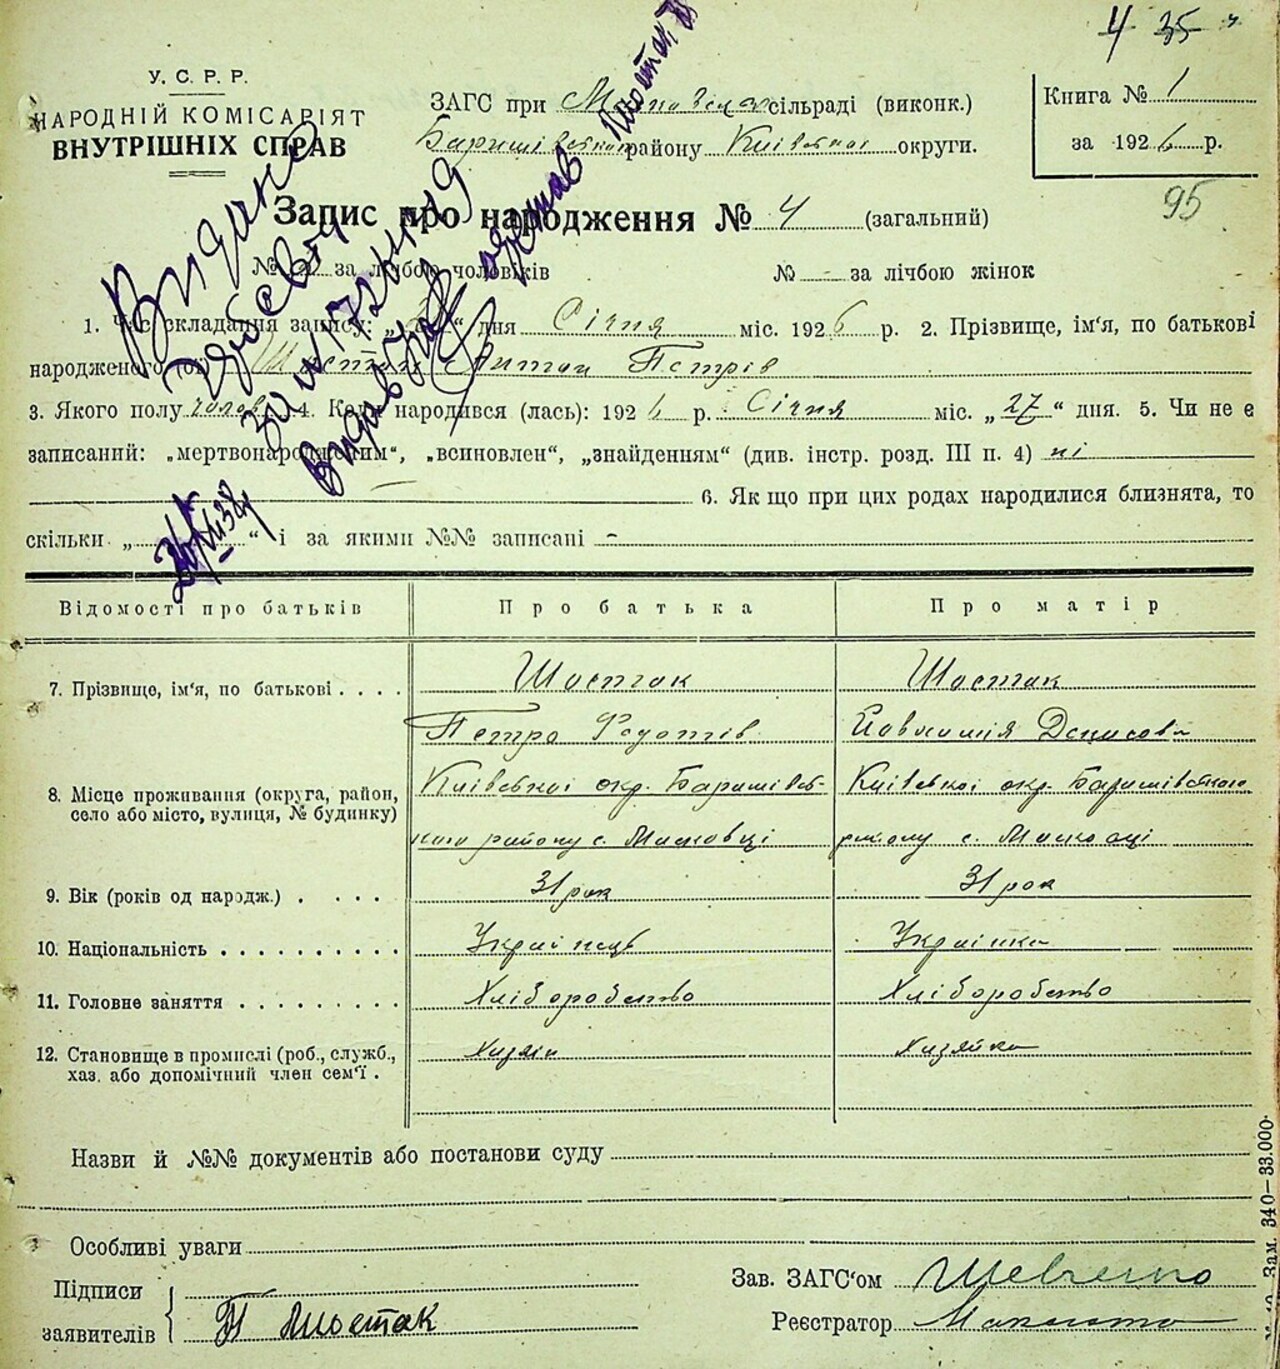 4 35
У. С. Р. Р.
НАРОДНІЙ КОМІСАРІЯТ
ВНУТРІШНІХ СПРАВ
ЗАГС при сільраді (виконк.)
району Київської округи.
Книга № 1
за 1926 р.
95
Запис про народження № 4 (загальний)
№ за лічбою чоловіків № - за лічбою жінок
1. Час складання запису: „ “ дня Січня міс. 1926 р. 2. Прізвище, ім'я, по батькові
народженого (ої) Шостак Антон Петрів
3. Якого полу чолов. 4. Коли народився (лась): 1926 р. Січня міс. „27“ дня. 5. Чи не є
записаний: „мертвонародженим“, „всиновлен“, „знайденням“ (див. інстр. розд. III п. 4) ні
6. Як що при цих родах народилися близнята, то
скільки „ “ і за якими №№ записані -
Видано
30
Видав
Шостак П
Відомості про батьків Про батька Про матір
7. Прізвище, ім'я, по батькові . . . . Шостак Шостак
Петро Федотів Денисова
8. Місце проживання (округа, район, село або місто, вулиця, № будинку) Київської окр. Баришівсь- Київської окр. Баришівського
кого району с. Масковці району с. Масковці
9. Вік (років од народж.) . . . . 31 рок 31 рок
10. Національність . . . . . . . . . . Українець Українка
11. Головне заняття . . . . . . . . . Хліборобство Хліборобство
12. Становище в промислі (роб., служб., хаз. або допомічний член сем'ї . Хазяїн Хазяйка
Назви й №№ документів або постанови суду
Особливі уваги
Підписи
заявителів П Шостак
Зав. ЗАГС'ом Шевченко
Реєстратор
Зам. 340—33.000.